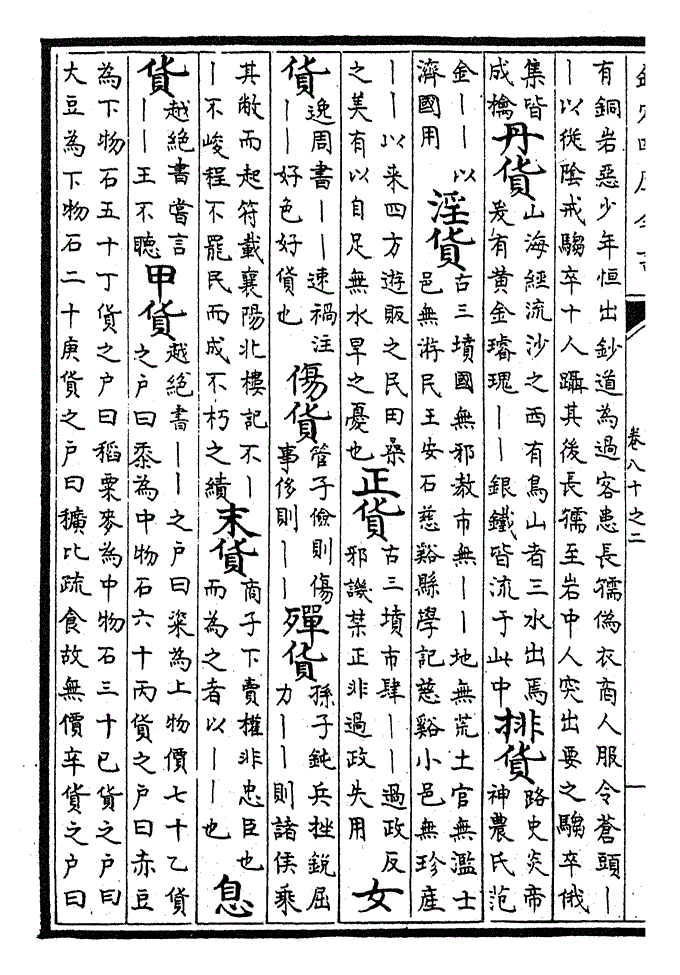 欽定四庫全書
卷八十之二
有銅岩惡少年恒出鈔道為過客患長孺偽衣商人服令蒼頭丨
丨以從陰戒騶卒十人躡其後長孺至岩中人突出要之騶卒俄
集皆咸擒丹貨山海經流沙之西有鳥山者三水出焉爰有黄金璿瑰丨丨銀鐵皆流于此中排貨路史炎帝神農氏范
金丨丨以濟國用淫貨古三墳國無邪教市無丨丨地無荒土官無濫士邑無游民王安石慈谿縣學記慈谿小邑無珍産
丨丨以来四方遊販之民田桑之美有以自足無水旱之憂也正貨古三墳市肆丨丨過政反邪譏禁正非過政失用女
貨逸周書丨丨速禍注丨丨好色好貨也傷貨管子儉則傷事侈則丨丨殫貨孫子鈍兵挫銳屈力丨丨則諸侯乘
其敝而起符載襄陽北樓記不丨丨不峻程不罷民而成不朽之績末貨商子下賣權非忠臣也而為之者以丨丨也息
貨越絶書嘗言丨丨王不聽甲貨越絶書丨丨之户曰粢為上物價七十乙貨之户曰黍為中物石六十丙貨之户曰赤豆
為下物石五十丁貨之户曰稻粟麥為中物石三十已貨之户曰
大豆為下物石二十庚貨之户曰穬比疏食故無價辛貨之户曰